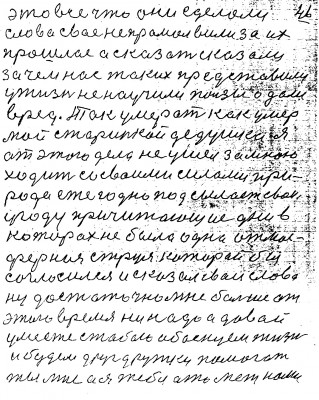 это все что они сделали 46
слова свае не прамолвили за их
прошлое а сказат сказали
зачем нас таких представили
у жизни не научили поизводали
вред. Так умерат как умер
мой старикой дедушка я
от этого дела не ушел за мною
ходит со своими силами при-
рода ежегодно подсылает свою
уроду причитающие дни в
которах не была одна атмос-
ферная струя которой бы
согласился и сказал свай слова
ну достаточно мне больше от
этого время ни надо а давай
умести с табою абоснуем жизни
и будем друг дружки помогат
ты мне а я тебе а то между нами